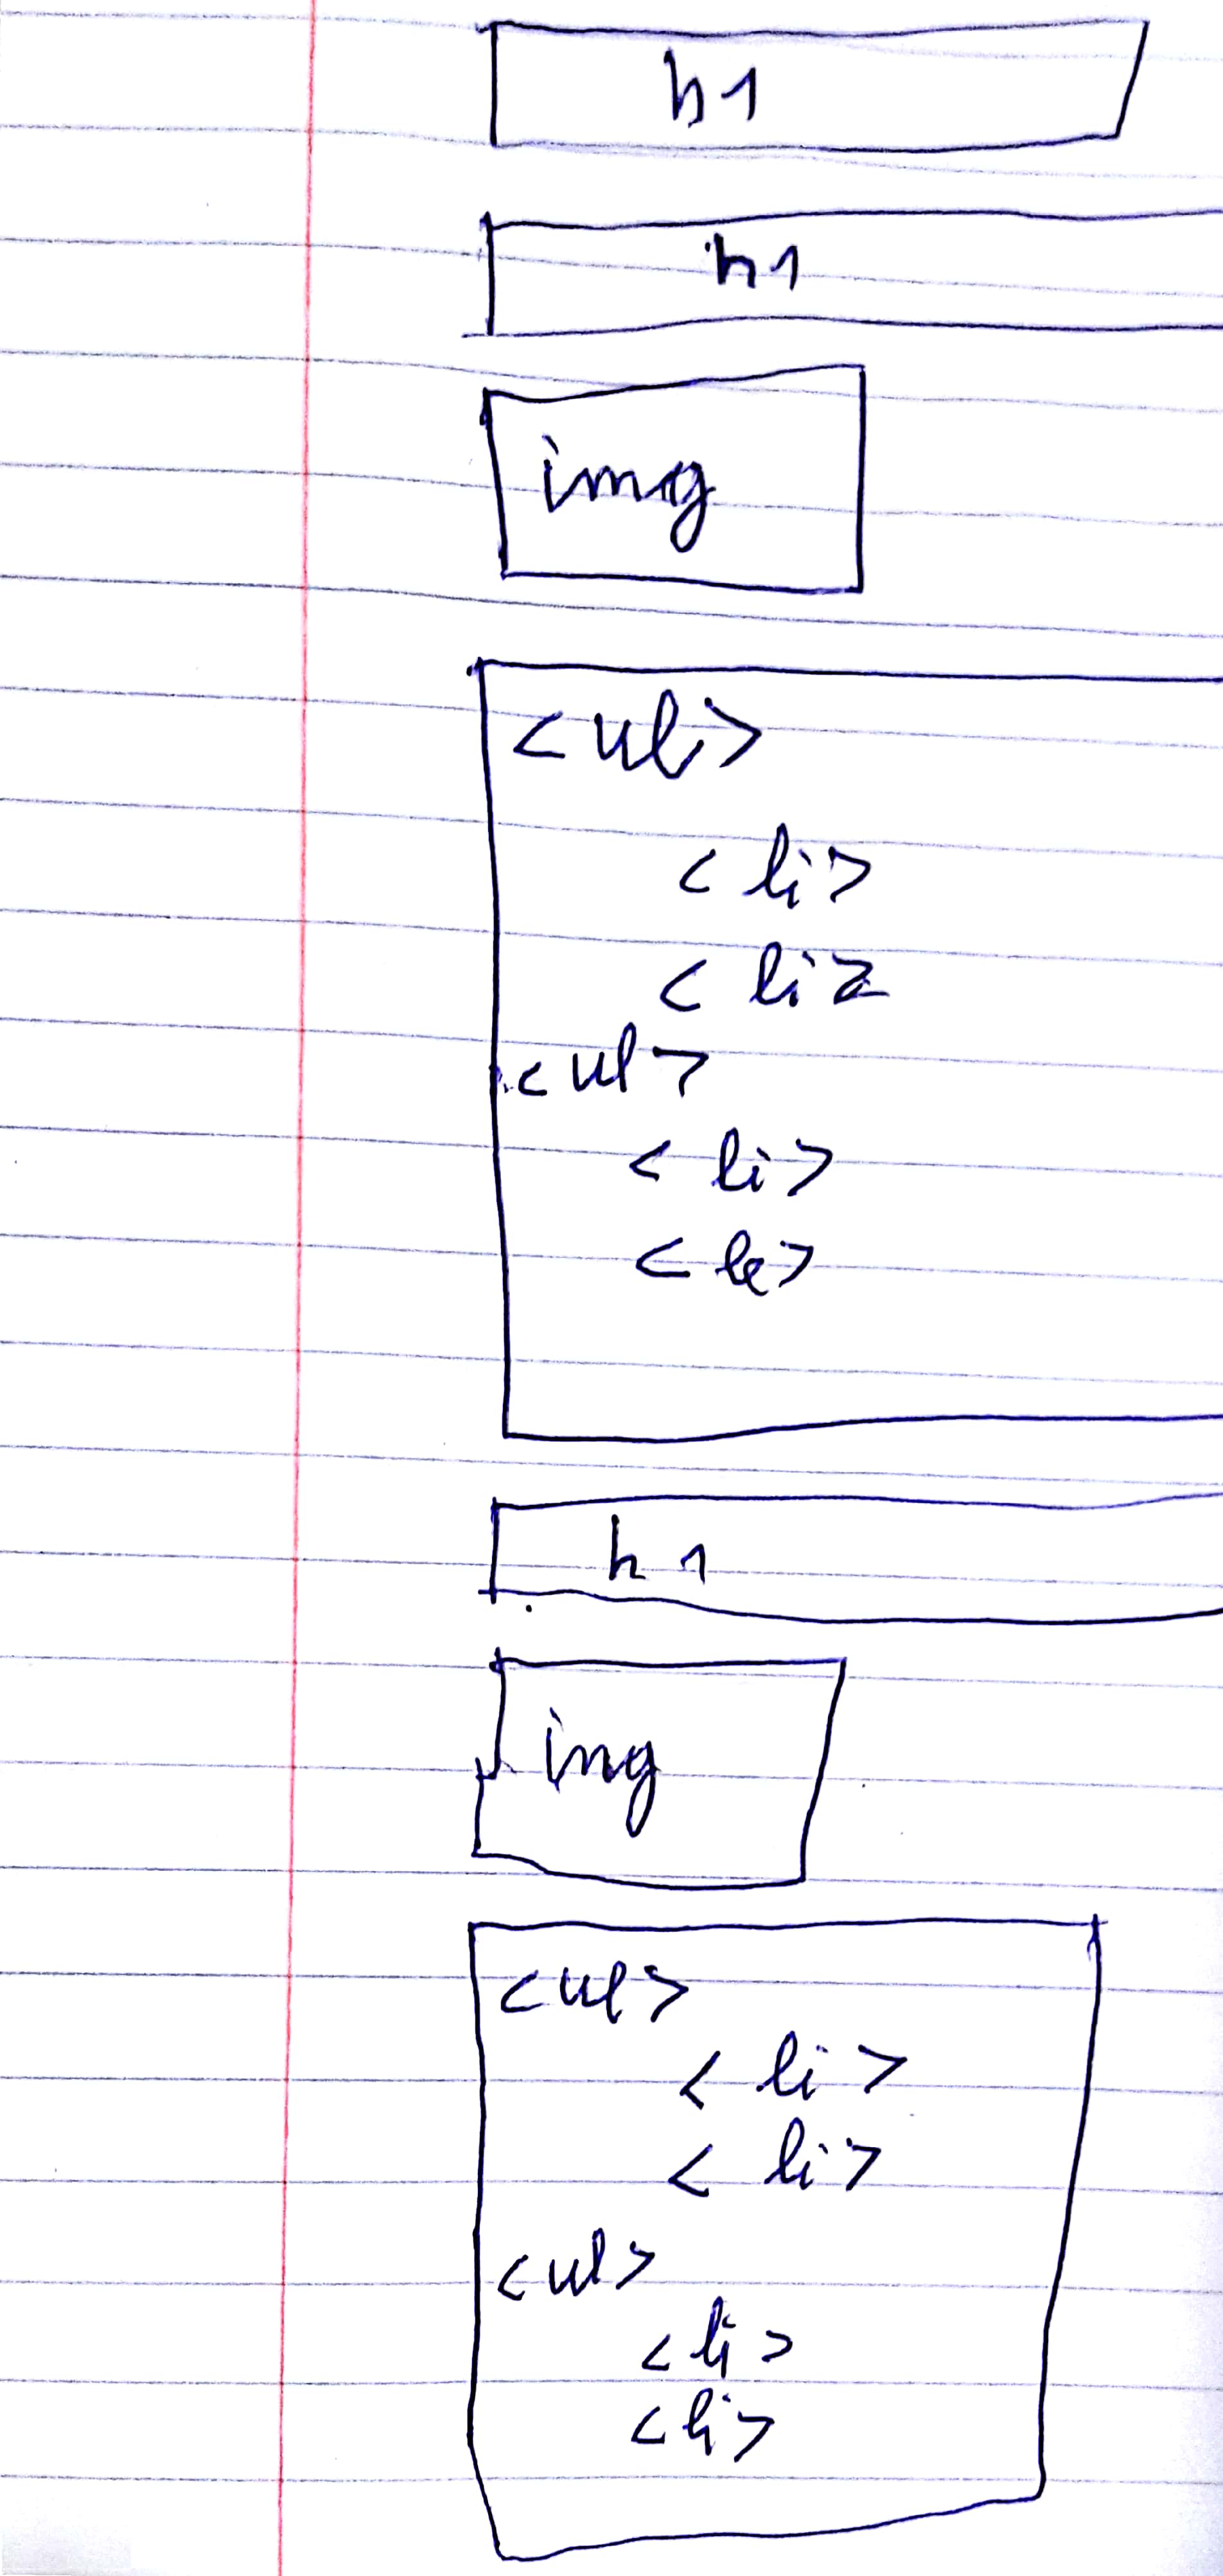 h1
h1
img
<ul>
<li>
<li>
<ul>
<li>
<li>
h1
img
<ul>
<li>
<li>
<ul>
<li>
<li>